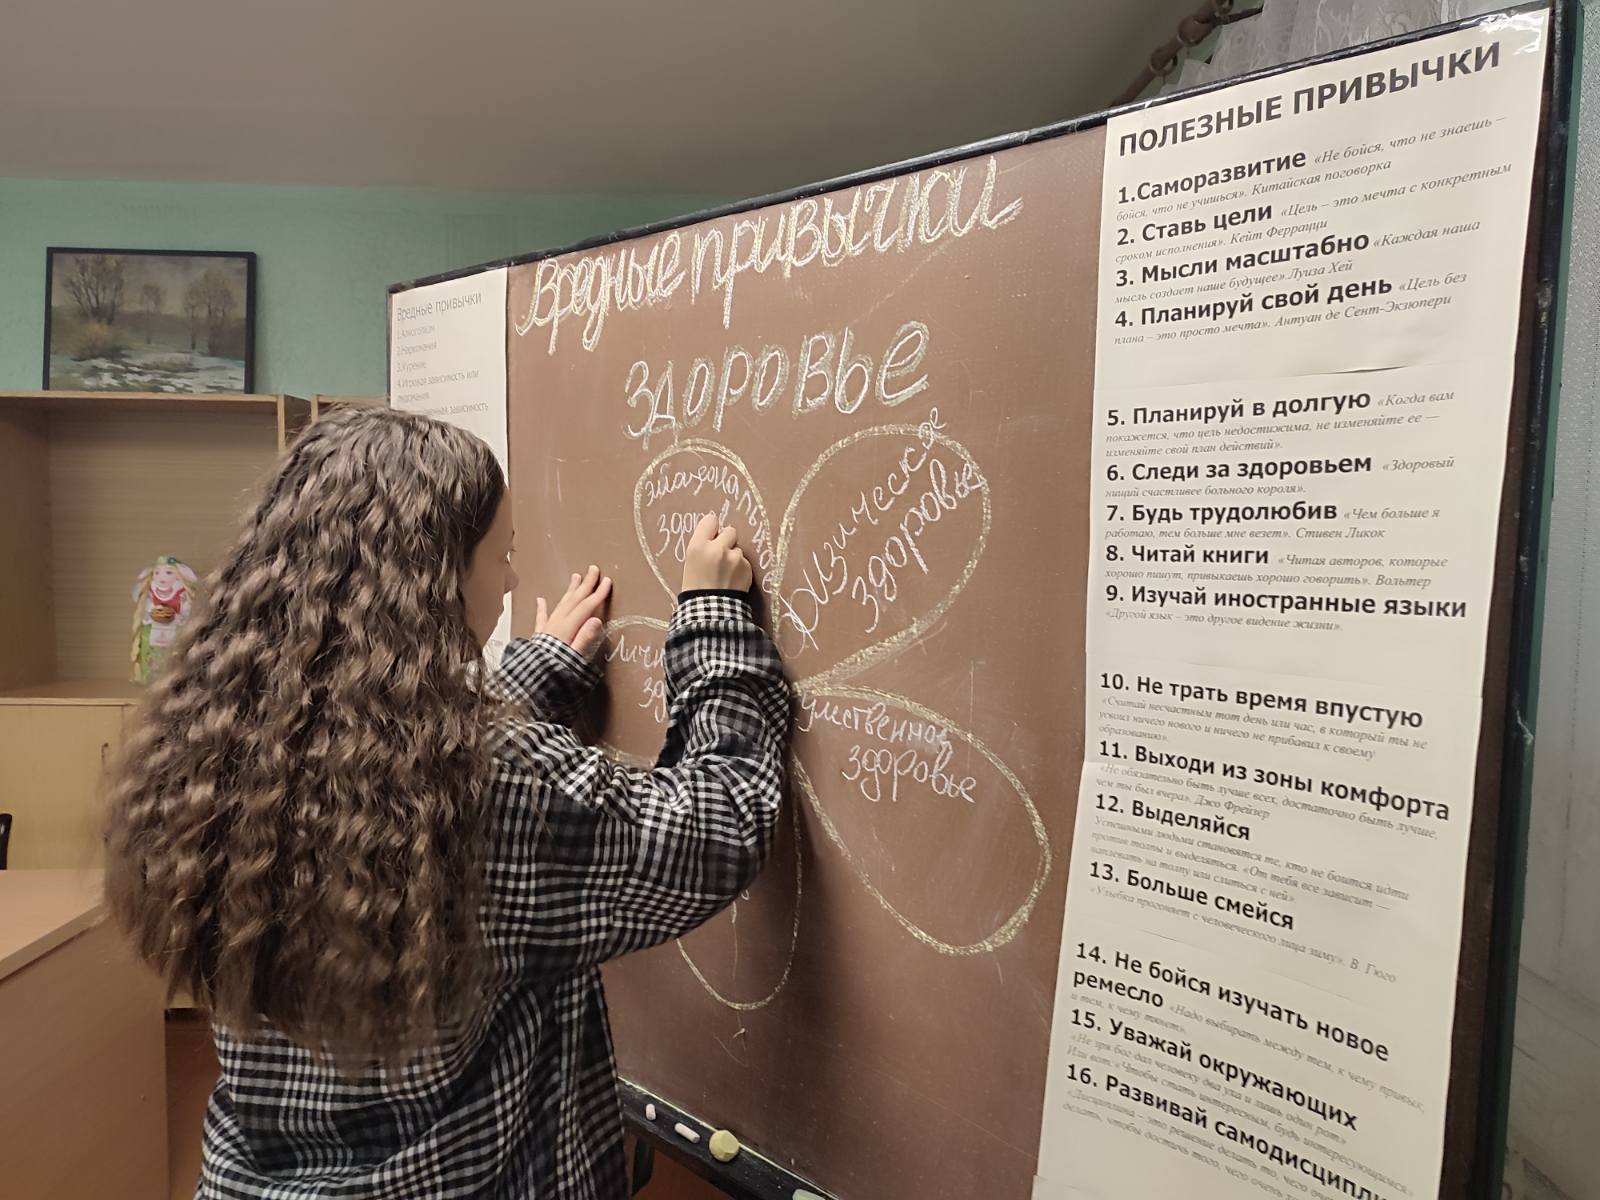 Вредные привычки
1.Алкоголизм
2.Наркомания
3.Курение
4.Игровая зависимость или
зависимость
Вредные привычки
Здоровье
эмоциональное
здоров
физическое
здоровье
Личн
зд
умственное
здоровье
ПОЛЕЗНЫЕ ПРИВЫЧКИ
1.Саморазвитие «Не бойся, что не знаешь –
бойся, что не учишься». Китайская поговорка
2. Ставь цели «Цель – это мечта с конкретным
сроком исполнения». Кейт Феррацци
3. Мысли масштабно «Каждая наша
мысль создает наше будущее».Луиза Хей
4. Планируй свой день «Цель без
плана – это просто мечта». Антуан де Сент-Экзюпери
5. Планируй в долгую «Когда вам
покажется, что цель недостижима, не изменяйте ее —
изменяйте свой план действий».
6. Следи за здоровьем «Здоровый
нищий счастливее больного короля».
7. Будь трудолюбив «Чем больше я
работаю, тем больше мне везет». Стивен Ликок
8. Читай книги «Читая авторов, которые
хорошо пишут, привыкаешь хорошо говорить». Вольтер
9. Изучай иностранные языки
«Другой язык – это другое видение жизни».
10. Не трать время впустую
«Считай несчастным тот день или час, в который ты не
усвоил ничего нового и ничего не прибавил к своему
образованию».
11. Выходи из зоны комфорта
«Не обязательно быть лучше всех, достаточно быть лучше,
чем ты был вчера». Джо Фрейзер
12. Выделяйся
Успешными людьми становятся те, кто не боится идти
против толпы и выделяться. «От тебя все зависит —
наплевать на толпу или слиться с ней».
13. Больше смейся
«Улыбка прогоняет с человеческого лица зиму». В. Гюго
14. Не бойся изучать новое
ремесло «Надо выбирать между тем, к чему привык,
и тем, к чему тянет».
15. Уважай окружающих
«Не зря бог дал человеку два уха и лишь один рот»
Или вот: «Чтобы стать интересным, будь интересующимся»
16. Развивай самодисципли
«Дисциплина – это решение делать то, чего очень
делать, чтобы достичь того, чего очень